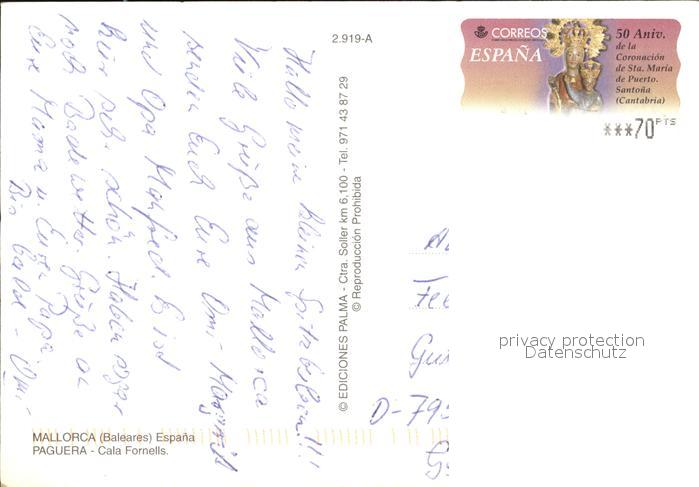 2.919-A
CORREOS
ESPAÑA
50 Aniv.
de la
Coronación
de Sta. María
de Puerto.
Santoña
(Cantabria)
***70 PTS
Hallo meine kleinen
Viele Grüße aus Mallorca
senden Euch Eure Omi - Margrit
und Opa Manfred. Es ist
hier sehr schön. Haben sogar
noch Badewetter. Grüße an
Eure Mama u. Euren Papa.
Bis bald - Omi -
© EDICIONES PALMA - Ctra. Soller km 6,100 - Tel. 971 43 87 29
© Reproducción Prohibida
D-795
privacy protection
Datenschutz
MALLORCA (Baleares) España
PAGUERA - Cala Fornells.